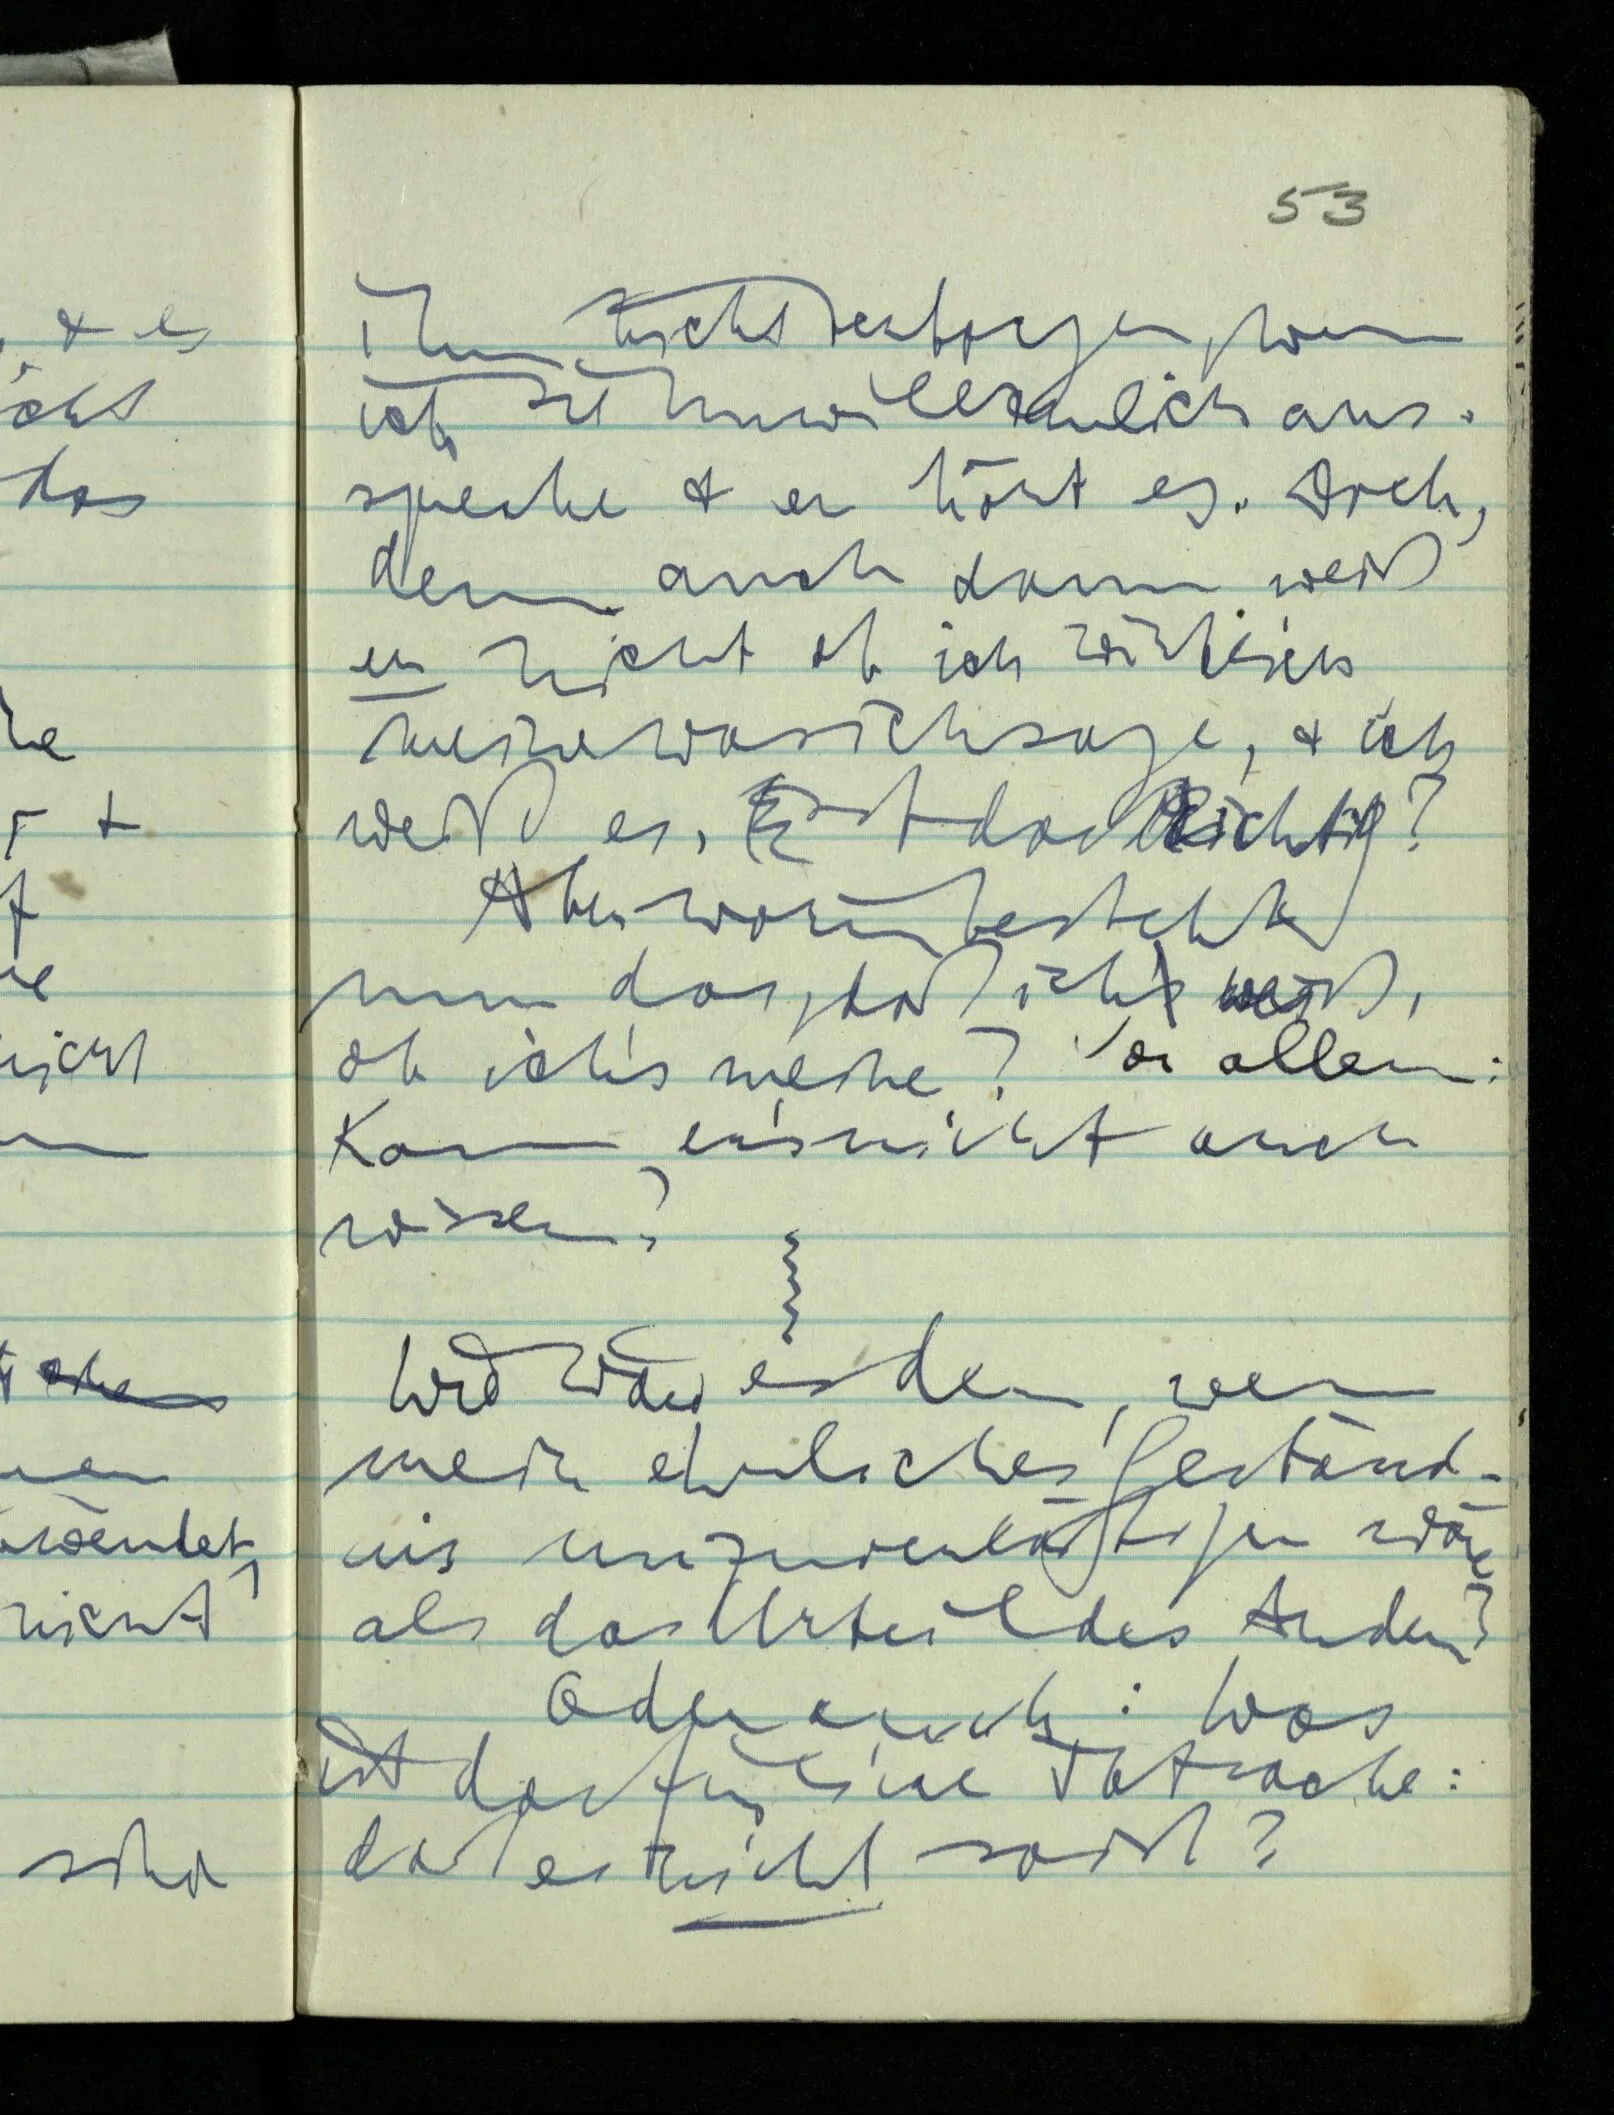 , & es
das
&
nicht
wendet,
nicht
53
Ihm nicht verborgen, wenn
ich sie unwillkürlich aus-
spreche & er hört es. Doch,
denn auch dann weiß
er nicht ob ich wirklich
meine was ich sage, & ich
weiß es. Ist das Richtig?
Aber worin besteht
nun das, daß ich's weiß,
ob ich's meine? Vor allem:
Kann er's nicht auch
wissen?
Wie wäre es denn, wenn
mein ehrliches Geständ-
nis unzuverläßiger wäre
als das Urteil des Andern?
Oder auch: Was
ist das für eine Tatsache:
daß es nicht so ist?